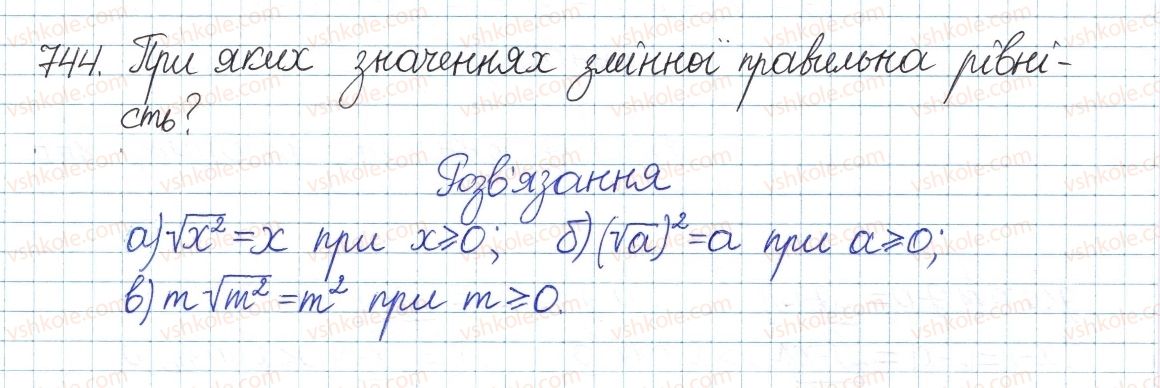 744. При яких значеннях змінної правильна рівні-
сть?
Розв'язання
а) √x² = x при x ≥ 0; б) (√a)² = a при a ≥ 0;
в) m√m² = m² при m ≥ 0.